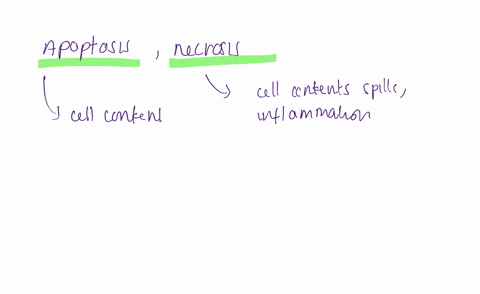 Apoptosis , necrosis
cell contents spills,
inflammation
cell content